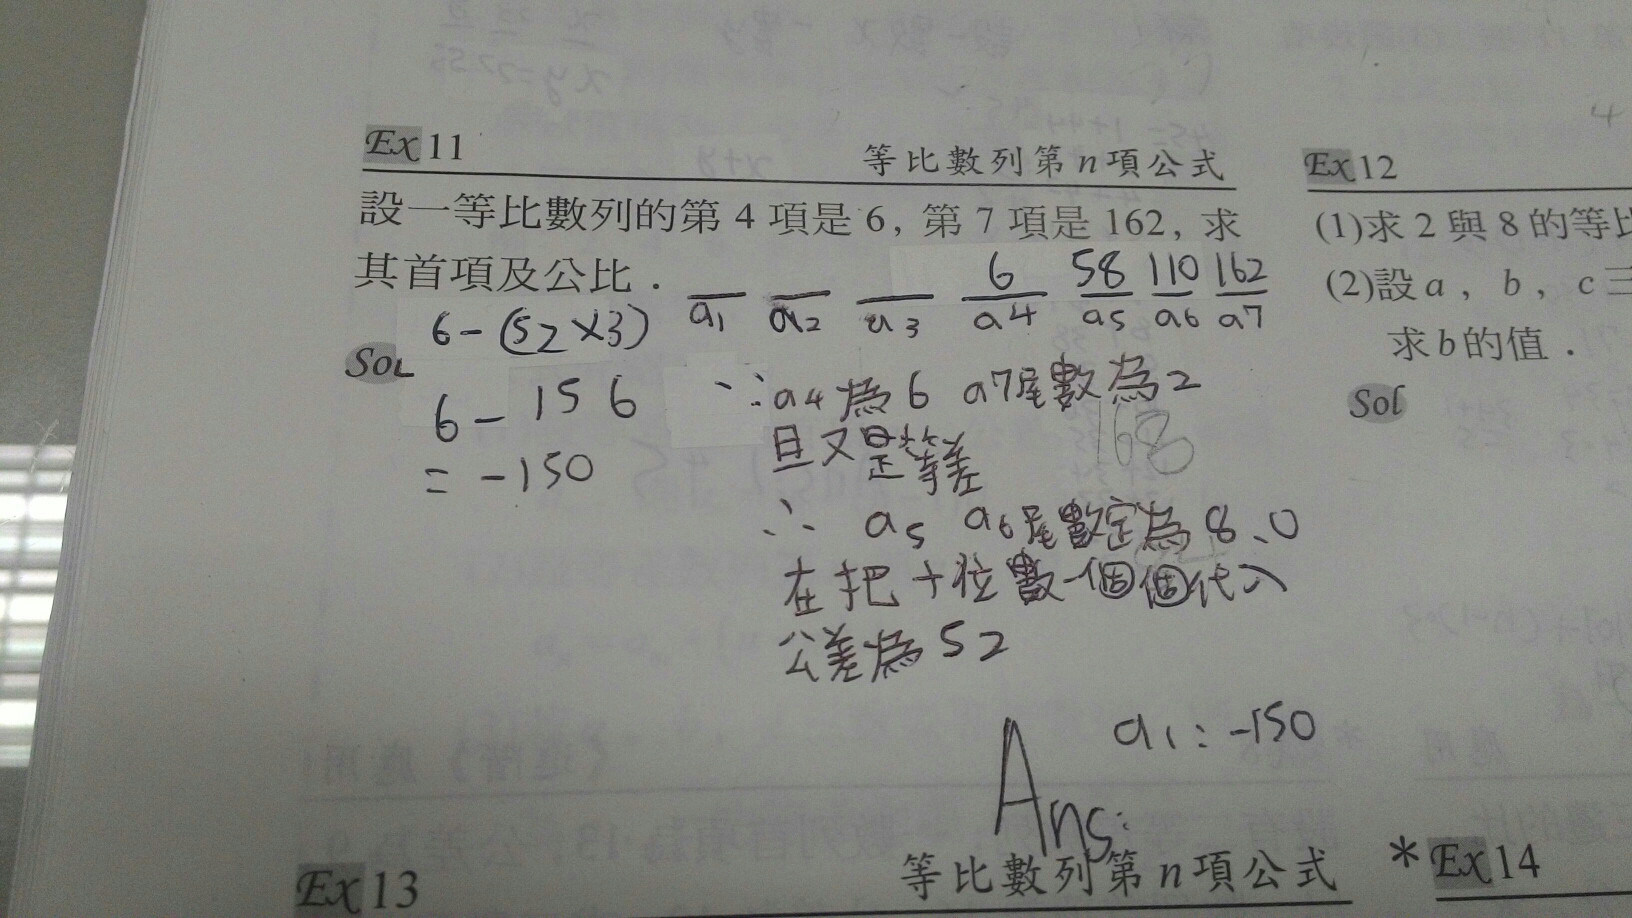 Ex 11 等比數列第 n 項公式
設一等比數列的第 4 項是 6, 第 7 項是 162, 求
其首項及公比.
6 58 110 162
a1 a2 a3 a4 a5 a6 a7
6-(52×3)
Sol
6-156
=-150
∵a4為6 a7尾數為2
且又是等差
168
∴ a5 a6尾數定為8、0
在把十位數一個個代入
公差為52
a1:-150
Ans:
Ex 12
(1)求 2 與 8 的等比
(2)設 a , b , c 三
求 b 的值.
Sol
Ex 13 等比數列第 n 項公式
*Ex 14